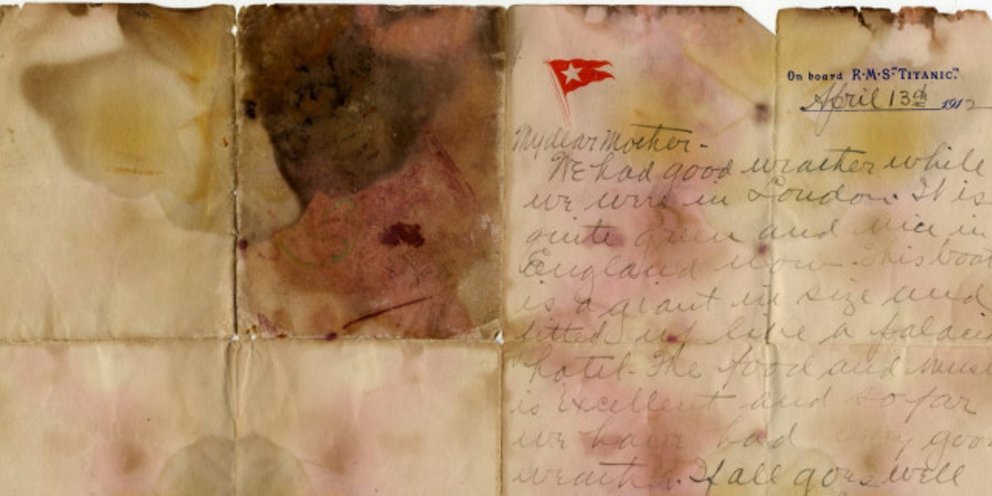 On board R·M·S "TITANIC."
April 13th 1912
My dear Mother-
We had good weather while
we were in London. It is
quite green and nice in
England now. This boat
is a giant in size and
fitted up like a palacial
hotel. The food and music
is excellent and so far
we have had very good
weather. If all goes well